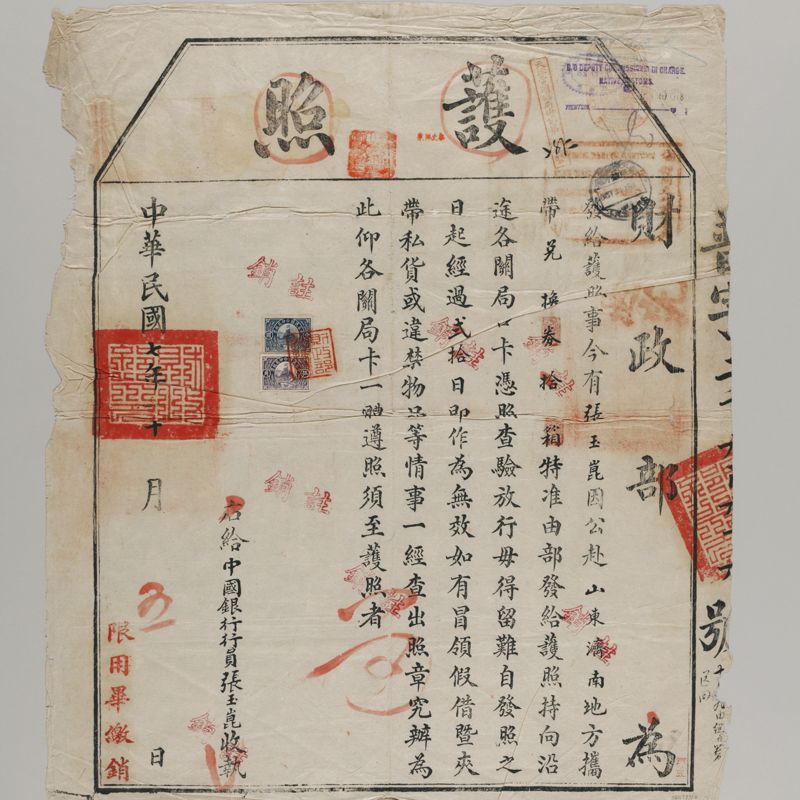 護照
財政部為
發給護照事今有張玉崑因公赴山東濟南地方攜
帶兑換券拾箱特准由部發給護照持向沿
途各關局口卡憑照查驗放行毋得留難自發照之
日起經過弍拾日即作為無效如有冒領假借暨夾
帶私貨或違禁物品等情事一經查出照章究辦為
此仰各關局卡一體遵照須至護照者
右給中國銀行行員張玉崑收執
中華民國七年
十
月
五
日
限用畢繳銷
號
註銷
註銷
財政部
DEPUTY COMMISSIONER IN CHARGE.
NATIVE CUSTOMS.